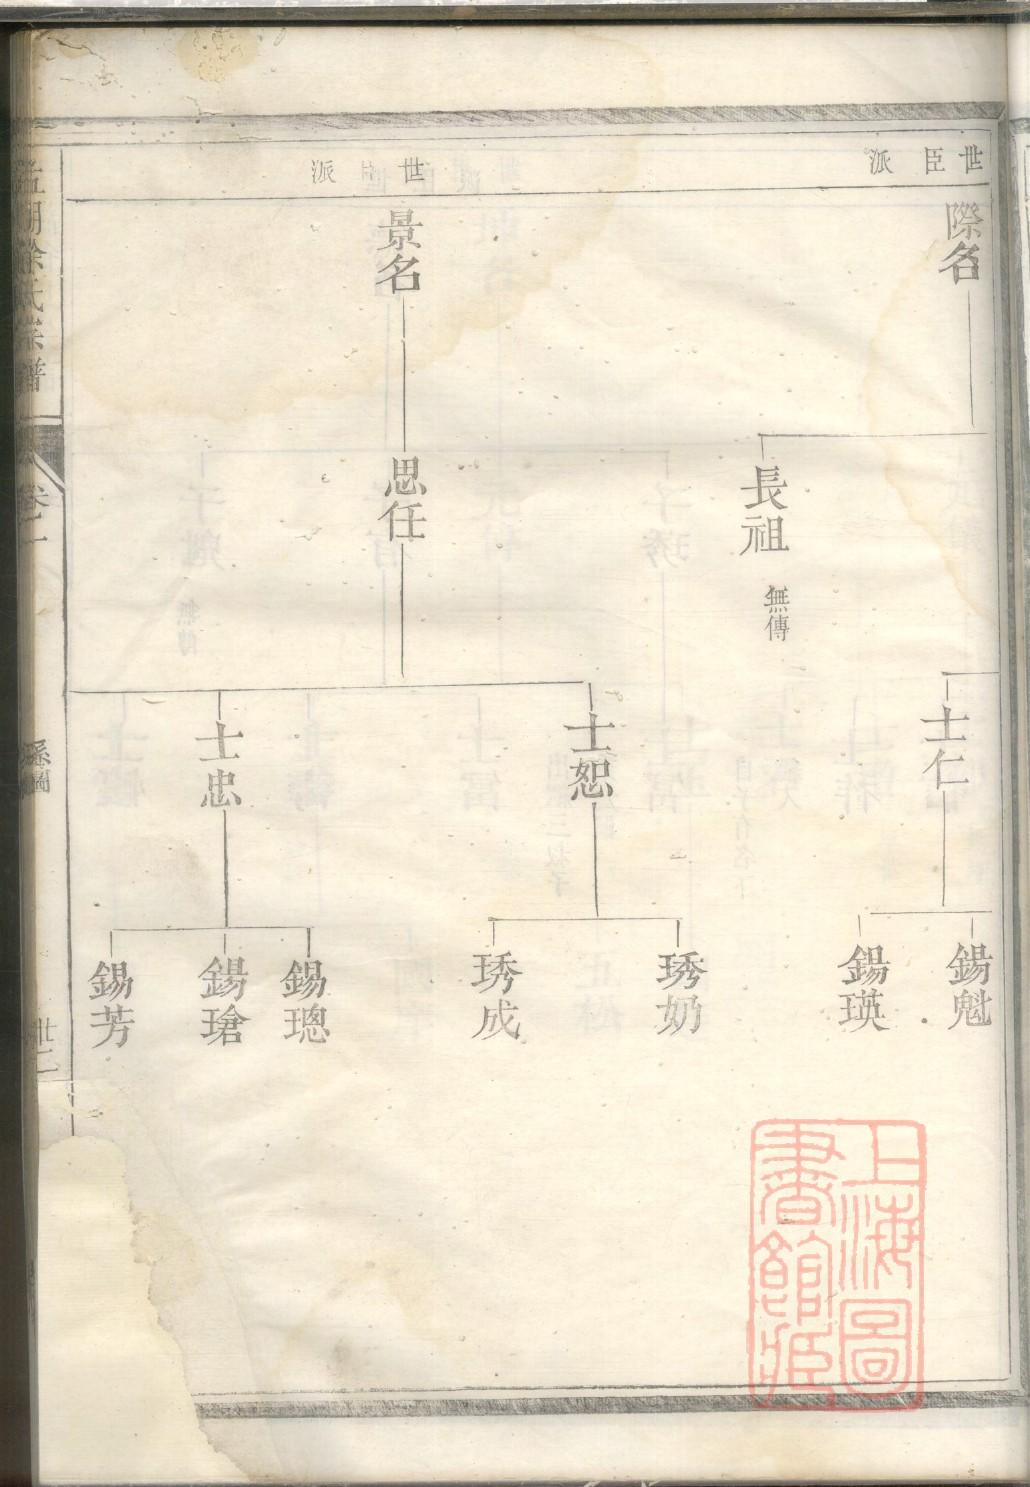 世臣派
際名
長祖
無傳
士仁
錫魁
錫瑛
世臣派
景名
思任
士恕
琇奶
琇成
士忠
錫璁
錫瑲
錫芳
徐氏宗譜
卷一
系圖
廿二
上海圖
書館藏